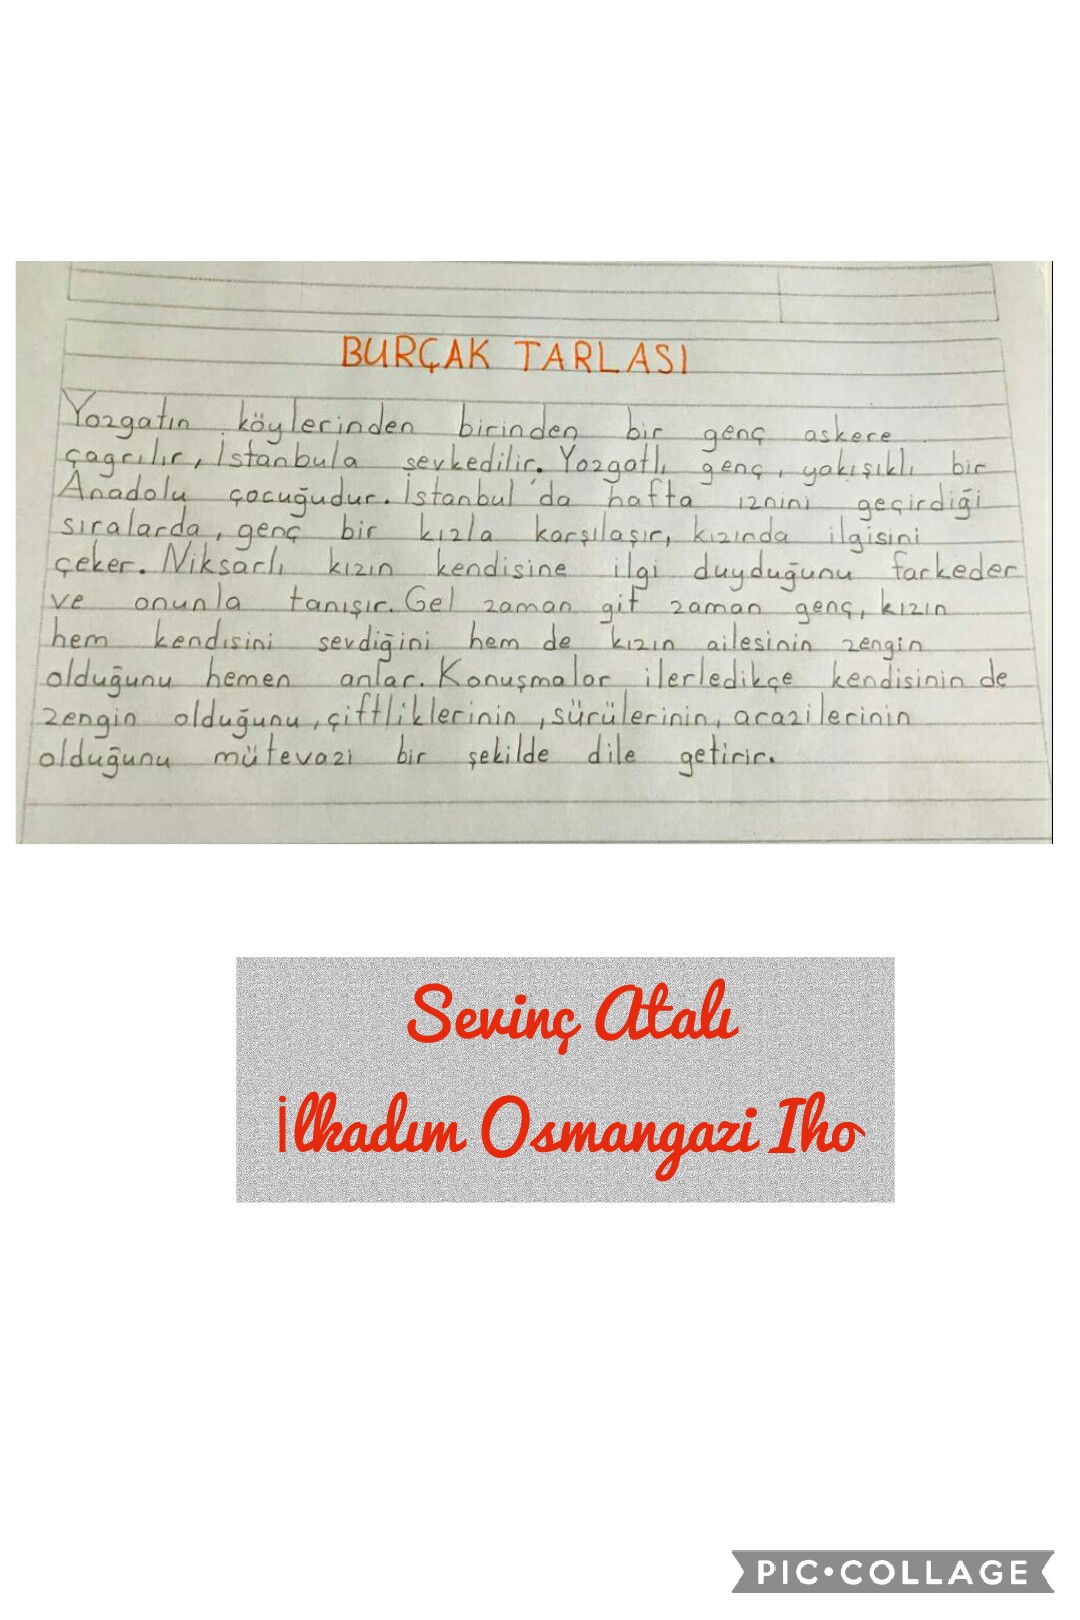 BURÇAK TARLASI
Yozgatın köylerinden birinden bir genç askere
çagrılır, İstanbula sevkedilir. Yozgatlı genç, yakışıklı bir
Anadolu çocuğudur. İstanbul'da hafta iznini geçirdiği
sıralarda, genç bir kızla karşılaşır, kızında ilgisini
çeker. Niksarlı kızın kendisine ilgi duyduğunu farkeder
ve onunla tanışır. Gel zaman git zaman genç, kızın
hem kendisini sevdiğini hem de kızın ailesinin zengin
olduğunu hemen anlar. Konuşmalar ilerledikçe kendisinin de
zengin olduğunu, çiftliklerinin, sürülerinin, arazilerinin
olduğunu mütevazi bir şekilde dile getirir.
Sevinç Atalı
İlkadım Osmangazi Iho
PIC•COLLAGE